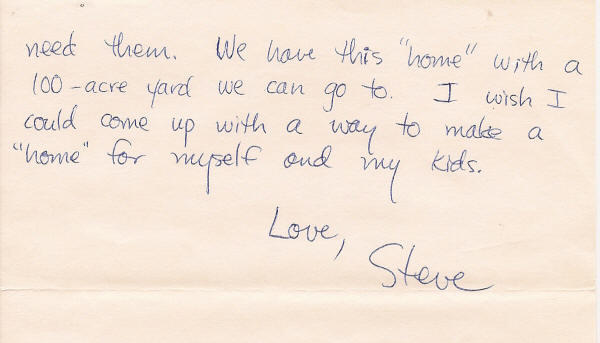 need them. We have this "home" with a
100-acre yard we can go to. I wish I
could come up with a way to make a
"home" for myself and my kids.
Love,
Steve